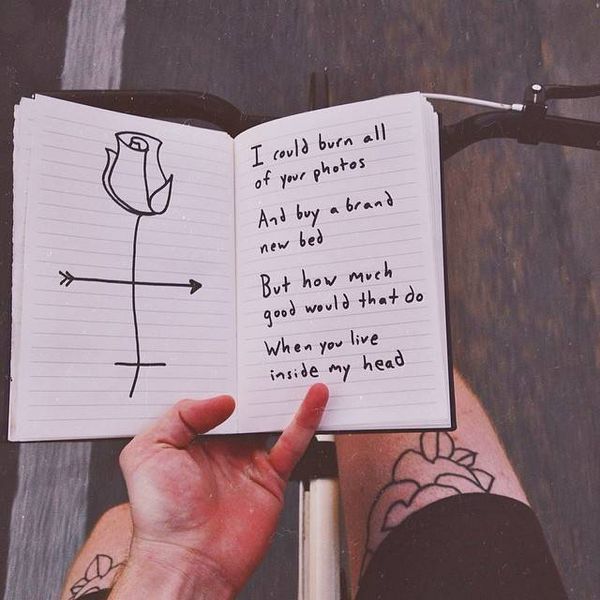 I could burn all
of your photos
And buy a brand
new bed
But how much
good would that do
When you live
inside my head